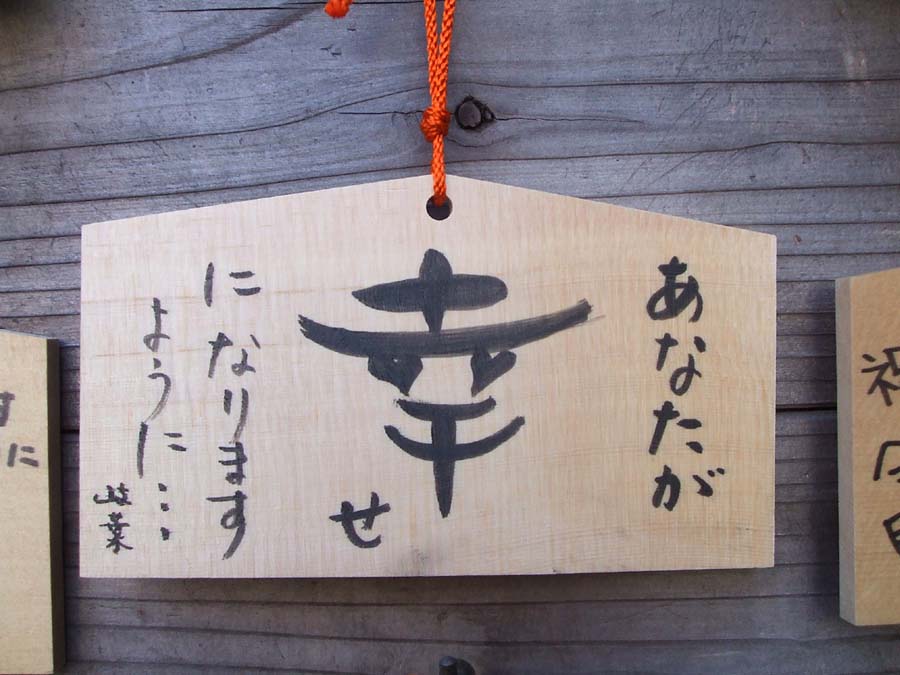 あなたが
幸せ
になります
ように…
岐葉
祝
す
に